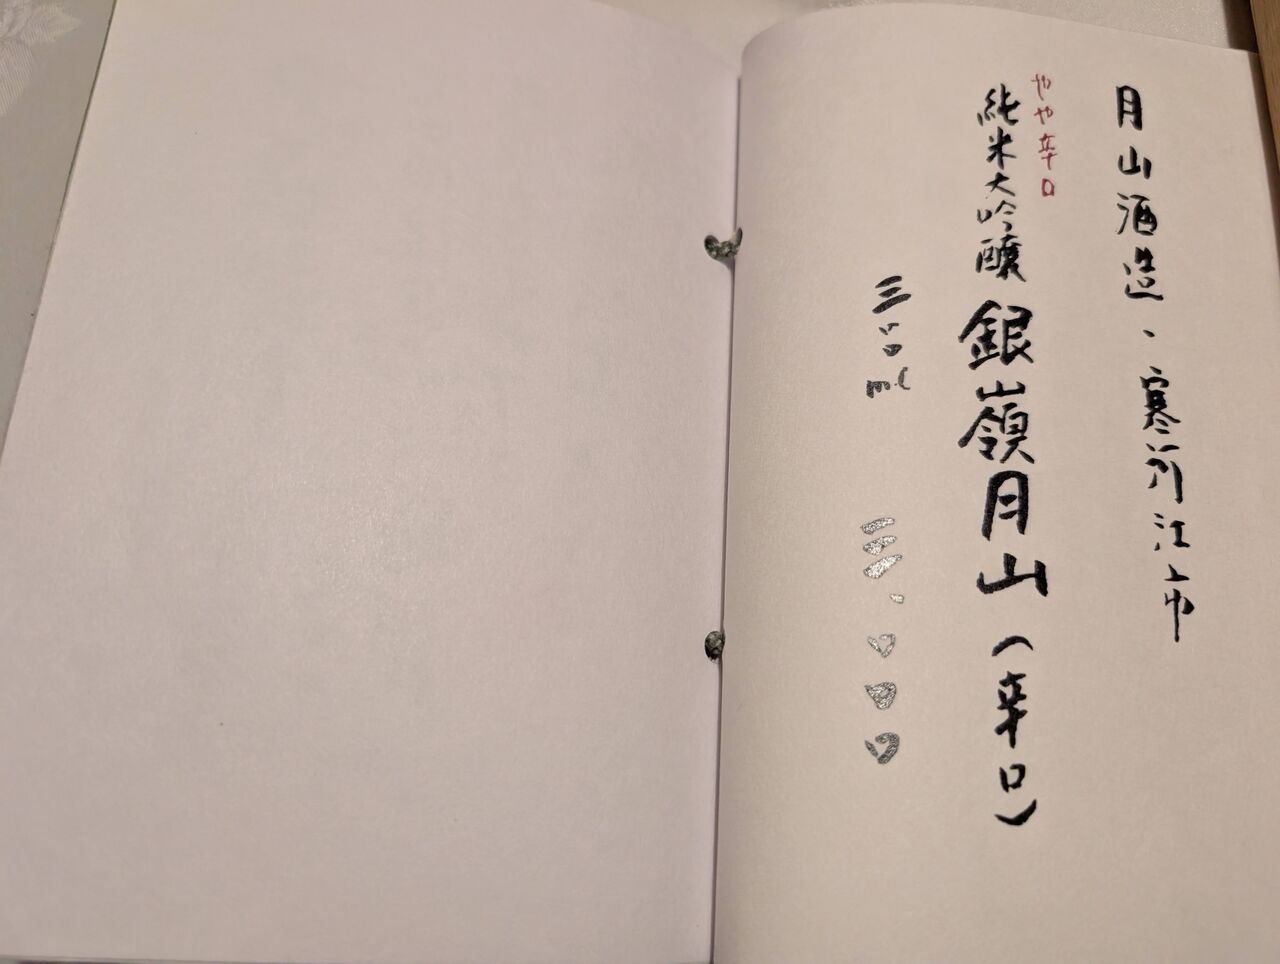 月山酒造、寒河江市
やや辛口
純米大吟醸 銀嶺月山(辛口)
三〇〇ml 三、〇〇〇